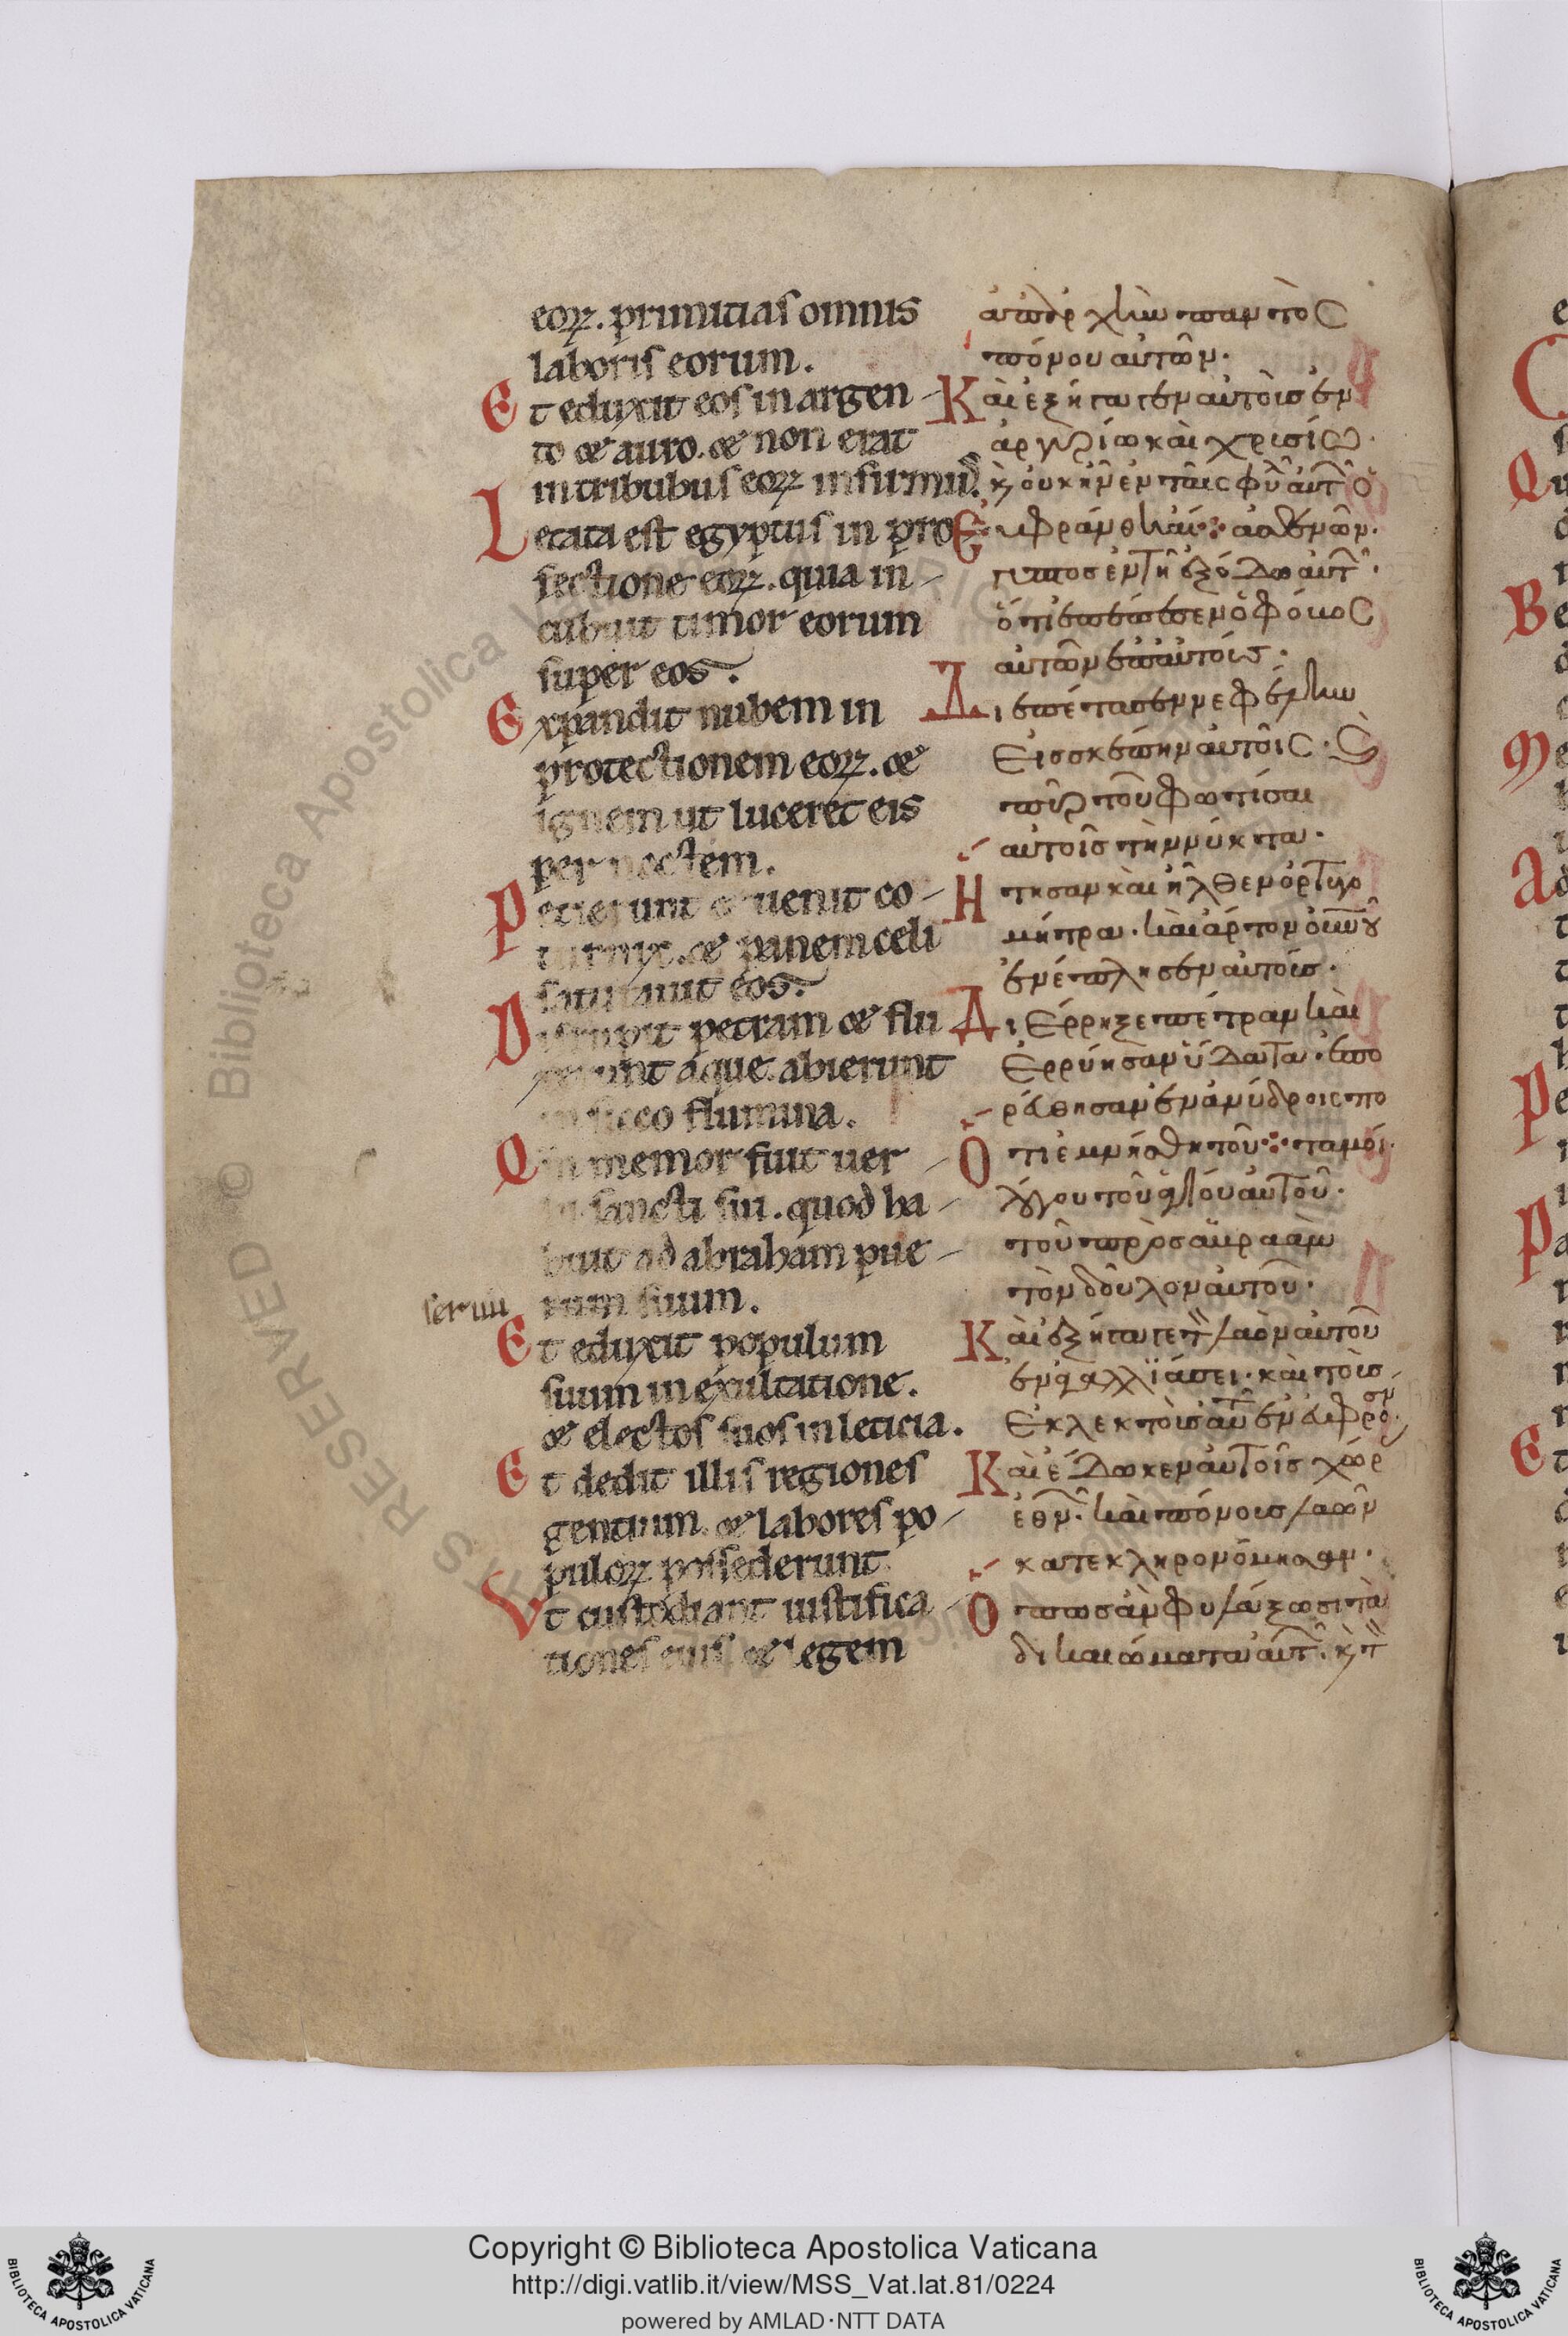 eoꝝ. primitias omnis
laboris eorum.
Et eduxit eos in argen
to et auro. et non erat
in tribubus eoꝝ infirmus.
Letata est egyptus in pro
fectione eoꝝ. quia in
cubuit timor eorum
super eos.
Expandit nubem in
protectionem eoꝝ. et
ignem ut luceret eis
per noctem.
Petierunt et uenit co
turnix. et panem celi
saturauit eos.
Disrupit petram et flu
xerunt aque. abierunt
in sicco flumina.
Qm memor fuit uer
bi sancti sui. quod ha
buit ad abraham pue
serum rum suum.
Et eduxit populum
suum in exultatione.
et electos suos in leticia.
Et dedit illis regiones
gentium. et labores po
puloꝝ possederunt
Vt custodiant iustifica
tiones eius et legem
ἀπαρχὴν παντὸς
πόνου αὐτῶν.
Κὰι ἐξήγαγεν αὐτὸισ ἐν
ἀργυρίω κὰι χρισίω.
κ οὐκ ἦν ἐν ταῖς φυ αὐτ ὁ
Εὐφράνθη αἴ ασθενῶν.
γυπτοσ ἐν τῆ ἐξόδω αὐτ.
ὅτι ἐπέπεσεν ὁ φόβος
αὐτῶν ἐπ αὐτόις.
Διεπέτασεν νεφέλην
Εισ σκέπην αὐτοῖς. ς
πῦρ τοῦ φωτίσαι
αὐτοῖς τὴν νύκτα.
Ἤτησαν κὰι ἦλθεν ὀρτυγο
μήτρα. κὰι ἄρτον οὐνοῦ
ἐνέπλησεν αὐτόις.
Διέρρηξε πέτραν κὰι
Ἐρρύησαν ὕδατα. ἐπο
ρέυθησαν ἐν ἀνύδροις πο
Ὅτι ἐμνήσθη τοῦ ταμόι.
λόγου τοῦ ἁγίου αὐτοῦ.
τοῦ πρὸς ἀβραὰμ
τὸν δοῦλον αὐτοῦ.
Κὰι ἐξήγαγε τ λαὸν αὐτοῦ
ἐν ἀγαλλϊάσει. κὰι τὸις
Ἐκλεκτὸις αὐτ ἐν ἐυφρο σν
Κὰι ἔδωκεν αὐτοῖς χώρ
ἐθν. κὰι πόνοις λαῶν
κατεκληρονόμησαν.
Ὅπωσ ἂν φυλάξωσι τὰ
δικαιώματα αὐτ. κ τ
Copyright © Biblioteca Apostolica Vaticana
http://digi.vatlib.it/view/MSS_Vat.lat.81/0224
powered by AMLAD·NTT DATA
BIBLIOTECA APOSTOLICA VATICANA
BIBLIOTECA APOSTOLICA VATICANA